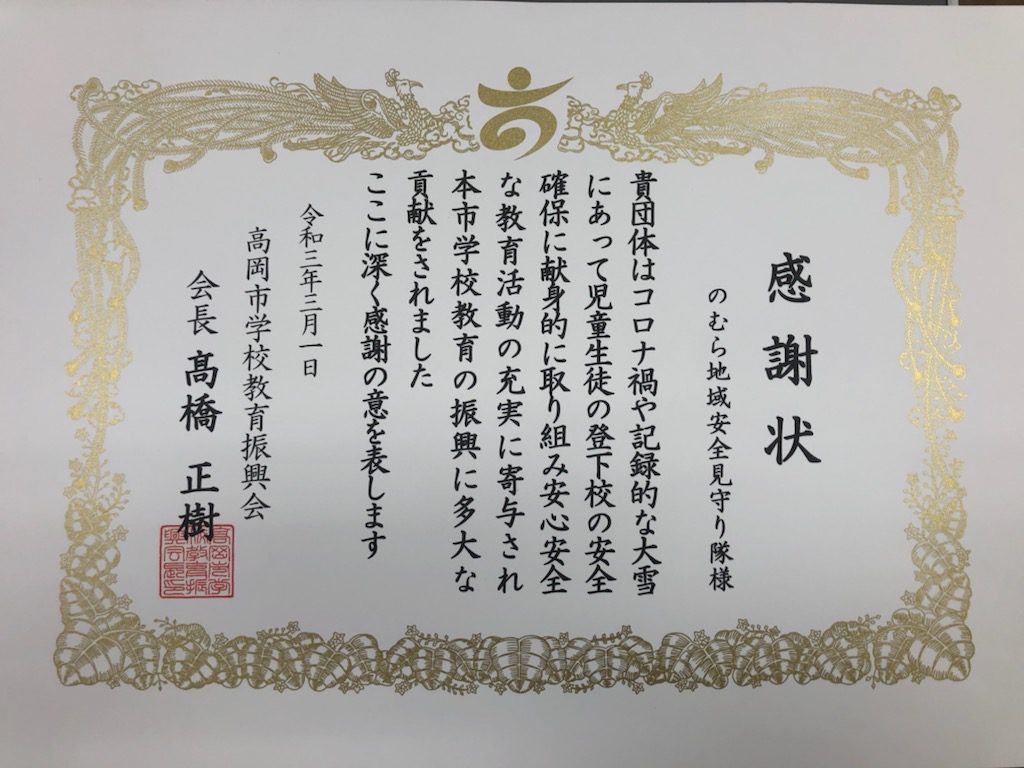 感謝状
のむら地域安全見守り隊様
貴団体はコロナ禍や記録的な大雪
にあって児童生徒の登下校の安全
確保に献身的に取り組み安心安全
な教育活動の充実に寄与され
本市学校教育の振興に多大な
貢献をされました
ここに深く感謝の意を表します
令和三年三月一日
高岡市学校教育振興会
会長 髙橋 正樹